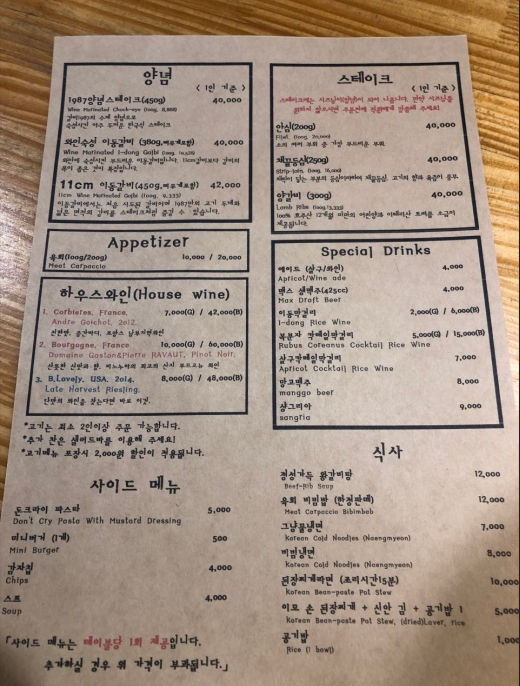 양념
( 1인 기준 )
1987양념스테이크(450g) 40,000
Wine Marinated Chuck-eye (100g, 8,888)
숙성시킨 아주 두꺼운 한국식 스테이크
와인숙성 이동갈비 (380g, 뼈무게포함) 40,000
Wine Marinated I-dong Galbi (100g, 10,526)
11cm 이동갈비(450g, 뼈무게포함) 42,000
11cm Wine Marinated Galbi (100g, 9,333)
Appetizer
육회(100g/200g) 10,000 / 20,000
Meat Carpaccio
하우스와인(House wine)
1. Corbieres, France 7,000(G) / 42,000(B)
Andre Goichot, 2012.
2. Bourgogne, France 10,000(G) / 60,000(B)
Domaine Gaston&Pierre RAVAUT, Pinot Noir,
3. B.Lovely, USA. 2014. 8,000(G) / 48,000(B)
Late Harvest Riesling.
단맛의 와인을 찾는다면 바로 이것.
*고기는 최소 2인이상 주문 가능합니다.
*추가 찬은 샐러드바를 이용해 주세요!
*고기메뉴 포장시 2,000원 할인이 적용됩니다.
사이드 메뉴
돈크라이 파스타 5,000
Don't Cry Pasta With Mustard Dressing
미니버거 (1개) 500
Mini Burger
감자칩 4,000
Chips
스프 4,000
Soup
「사이드 메뉴는 테이블당 1회 제공입니다.
추가하실 경우 위 가격이 부과됩니다.」
스테이크
( 1인 기준 )
안심(200g) 40,000
Filet. (100g, 20,000)
소의 여러 부위 중 가장 부드러운 부위
채끝등심(250g) 40,000
Strip-loin. (100g, 16,000)
양갈비 (300g) 40,000
Lamb Ribs (100g, 13,333)
제공됩니다.
Special Drinks
에이드 (살구/와인) 4,000
Apricot/Wine ade
맥스 생맥주(425cc) 4,000
Max Draft Beef
이동막걸리 2,000(G) / 6,000(B)
I-dong Rice Wine
복분자 막걸리 5,000(G) / 15,000(B)
Rubus Coreanus Cocktail Rice Wine
살구칵테일막걸리 7,000
Apricot Cocktail Rice Wine
망고맥주 8,000
manggo beef
샹그리아 9,000
sangria
식사
정성가득 왕갈비탕 12,000
Beef-Rib Soup
육회 비빔밥 (한정판매) 12,000
Meat Carpaccio Bibimbab
그냥물냉면 7,000
Korean Cold Noodles (Naengmyeon)
비빔냉면 8,000
Korean Cold Noodles (Naengmyeon)
된장찌개라면 (조리시간15분) 10,000
Korean Bean-paste Pot Stew
이모 손 된장찌개 + 신안 김 + 공기밥 1 5,000
Korean Bean-paste Pot Stew, (dried)Laver, rice
공기밥 1,000
Rice (1 bowl)